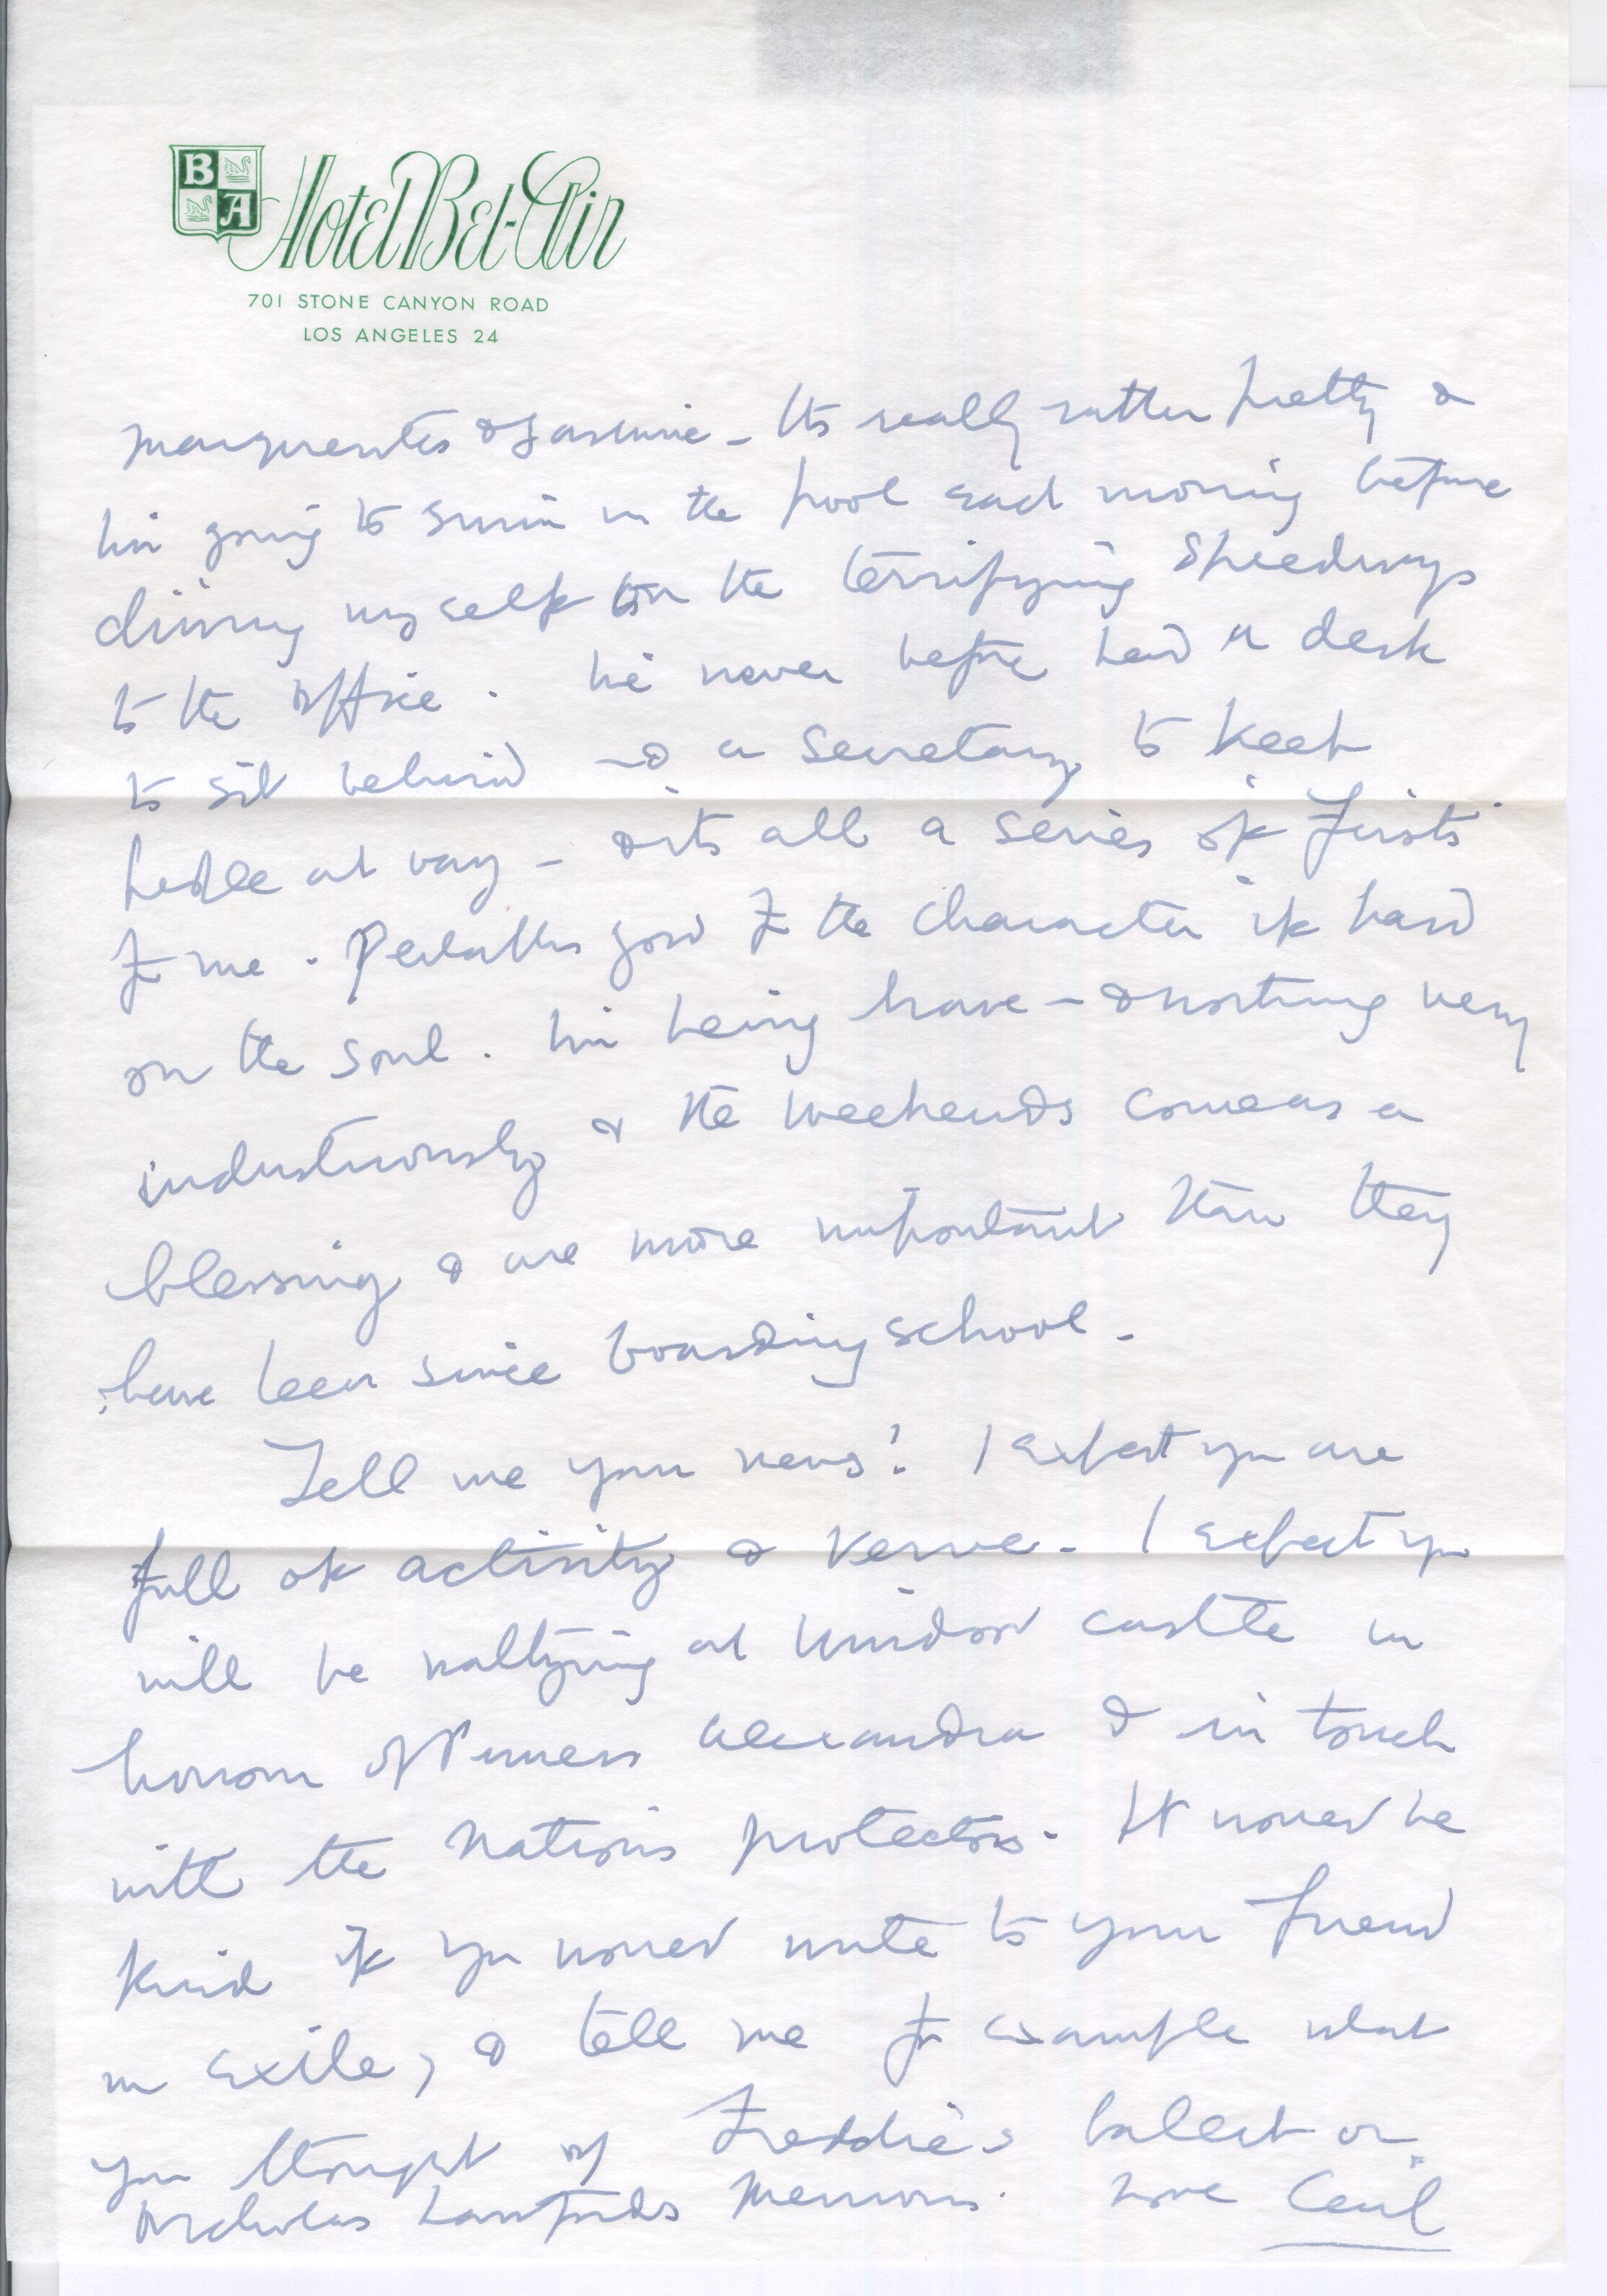 B
A
Hotel Bel-Air
701 STONE CANYON ROAD
LOS ANGELES 24
marguerites & Jasmine – Its really rather pretty &
I'm going to swim in the pool each morning before
driving myself on the terrifying speedways
to the office. I've never before had a desk
to sit behind – & a secretary to keep
people at bay – & its all a series of 'firsts'
for me. Perhaps good for the character if hard
on the soul. I'm being brave – & working very
industriously & the weekends come as a
blessing & are more important than they
have been since boarding school.
Tell me your news! I expect you are
full of activity & verve. I expect you
will be waltzing at Windsor Castle in
honour of Princess Alexandra & in touch
with the Nations protectors. It would be
kind if you would write to your friend
in exile, & tell me for example what
you thought of Freddie's ballet or
Nicholas Memoirs. Love Cecil